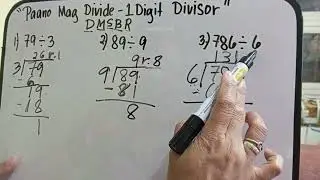 "Paano Mag Divide - 1 Digit Divisor"
DMSBR
1) 79÷3 2) 89÷9 3) 786÷6
26 r.1 9 r.8 131
3 79 9 89 6 78
-6 -81
19 8
-18
1